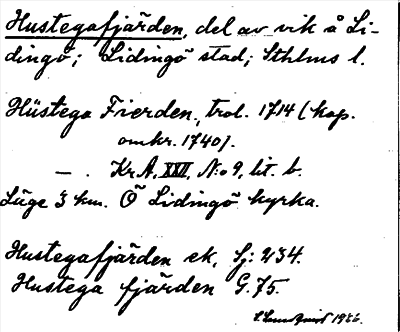 Hustegafjärden, del av vik å Li-
dingö; Lidingö stad; Sthlms l.
Hüstega Fierden, trol. 1714 (kop.
omkr. 1740).
— . KrA, XXII, No 9, lit. b.
Läge 3 km. Ö Lidingö kyrka.
Hustegafjärden ek, Sj: 234.
Hustega fjärden G. 75.
1936.